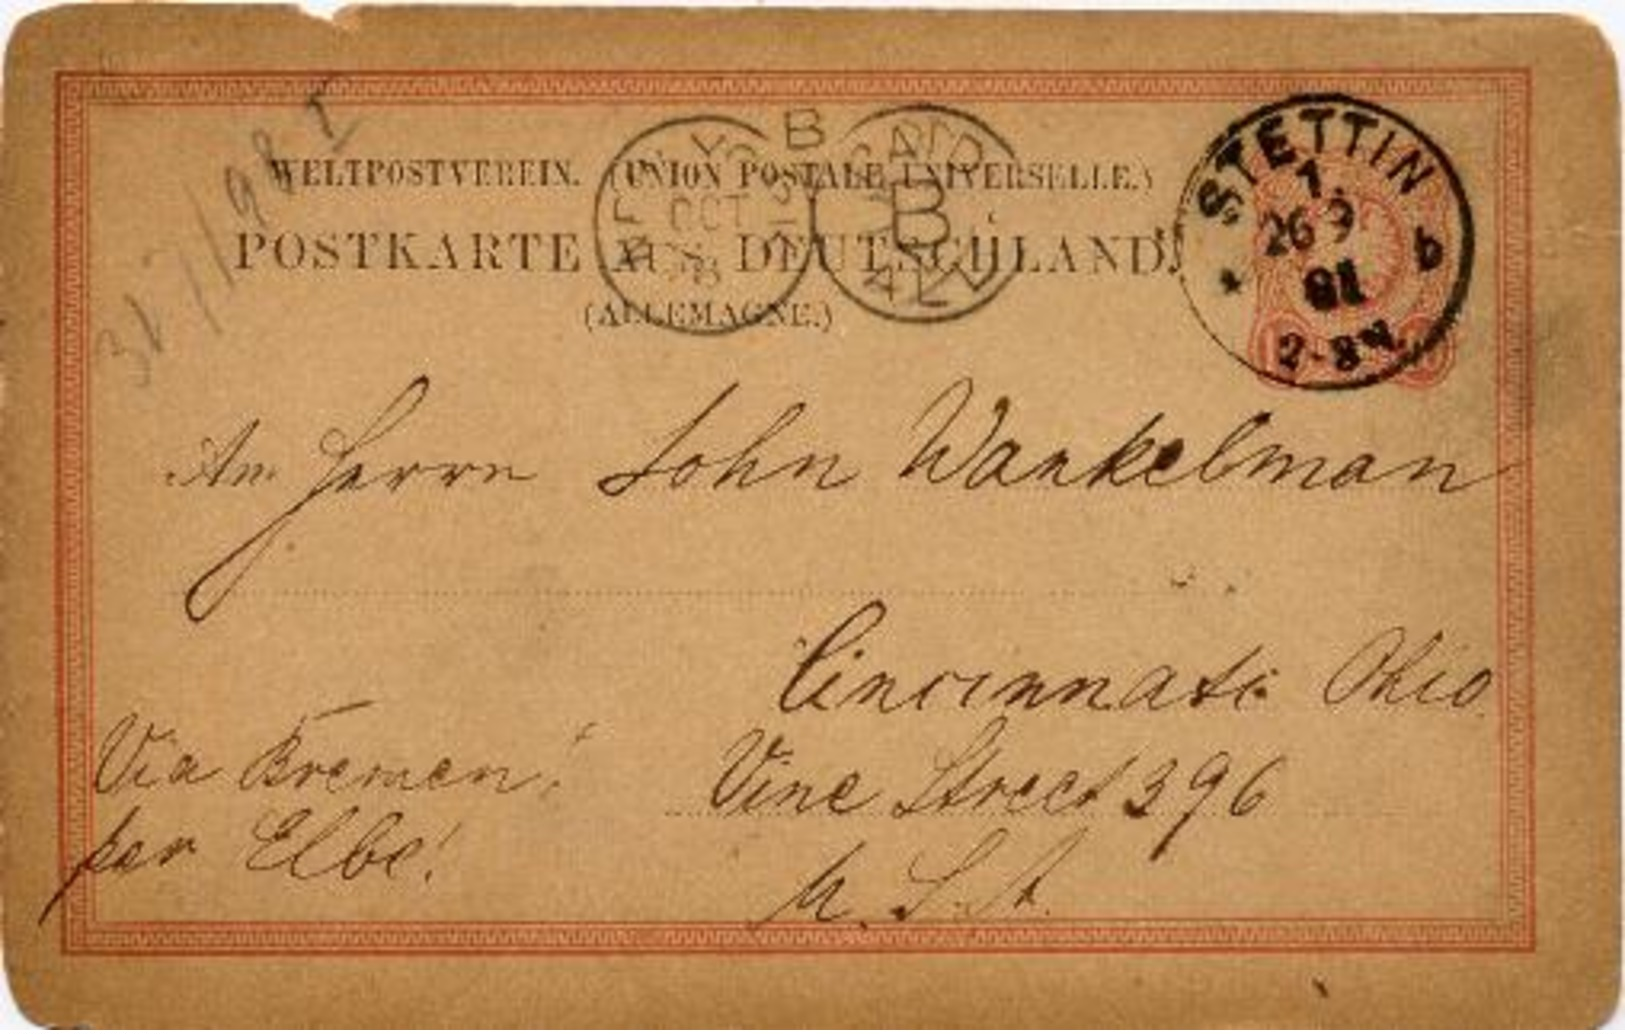 WELTPOSTVEREIN. (UNION POSTALE UNIVERSELLE.)
POSTKARTE AUS DEUTSCHLAND.
(ALLEMAGNE.)
B
OCT
B
ALL
STETTIN
1.
26 9
81
b
2-3N.
An Herrn John Wankelman
Cincinnati Ohio.
Via Bremen!
Vine Street 396
per Elbe!
U. S. A.